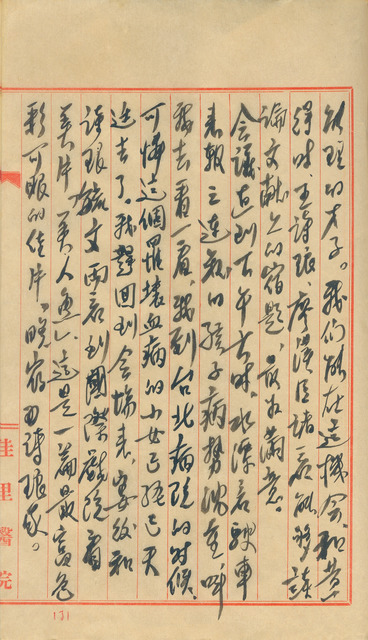 能理的才子。我們能在這機會,和黃
得時、王詩琅、廖漢臣諸君能夠談
論文献上的宿題,最為滿意。
會議直到下午七時,水潭君駛車
來報三連兄的孩子病勢沉重,叫
我去看一看,我到台北病院的時候,
可憐這個罹壞血病的小女已經已天
逝去了。我歸回到會場來,宴後和
詩琅毓文兩君到國際戲院看
美片美人魚,這是一篇最富色
彩可眼的佳片。晚宿詩琅家。
佳里醫院
131